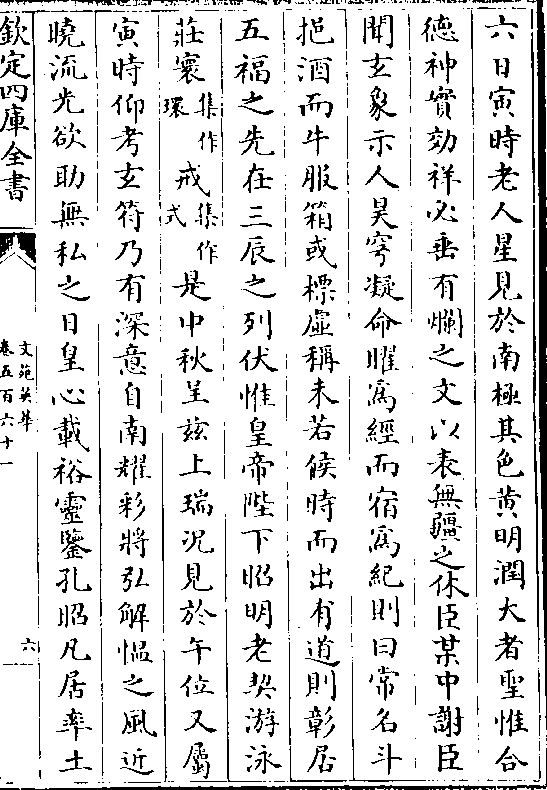 六日寅時老人星見於南極其色黄明潤大者聖惟合
徳神實効祥必垂有爛之文以表無疆之休臣某中謝臣
聞玄象示人昊穹凝命曜寫經而宿寫紀則曰常名斗
挹酒而牛服箱或標虚稱未若候時而出有道則彰居
五福之先在三辰之列伏惟皇帝陛下昭明老契游泳
莊寰集作環戒集作式是中秋呈兹上瑞況見於午位又屬
寅時仰考玄符乃有深意自南耀彩將弘解愠之風近
曉流光欲助無私之日皇心載裕靈鑒孔昭凡居率土
欽定四庫全書
文苑英華
卷五百六十一
六